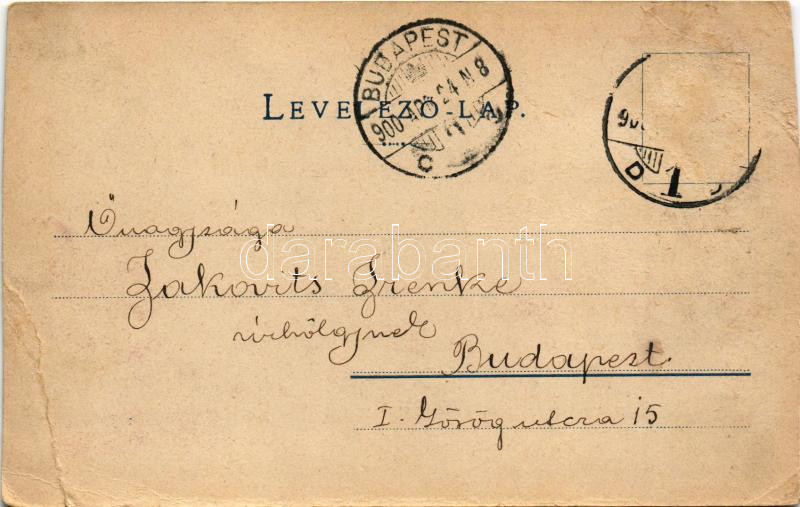 LEVELEZŐ-LAP.
BUDAPEST
900 APR 24 N 8
C
900
D 1
Őnagysága
Zakovits Irenke
úrhölgynek
Budapest.
I. Görög utcza 15
darabanth